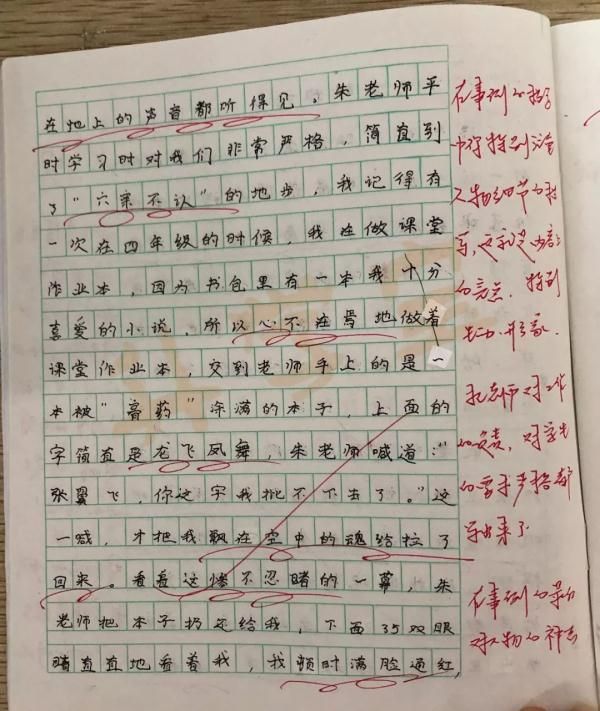 在地上的声音都听得见。朱老师平
时学习时对我们非常严格，简直到
了“六亲不认”的地步，我记得有
一次在四年级的时候，我在做课堂
作业本，因为书包里有一本我十分
喜爱的小说，所以心不在焉地做着
课堂作业本，交到老师手上的是一
本被“膏药”涂满的本子，上面的
字简直是龙飞凤舞，朱老师喊道：“
张翼飞，你这字我批不下去了。”这
一喊，才把我飘在空中的魂给拉了
回来。看着这惨不忍睹的一幕，朱
老师把本子扔还给我，下面35双眼
睛直直地看着我，我顿时满脸通红，
在事例的
中
人物细节
写，这
的亮点，特别
生动形象
老师对工作
的负责，对学生
的要求严格都
写出来了
在事例
对人物的神态